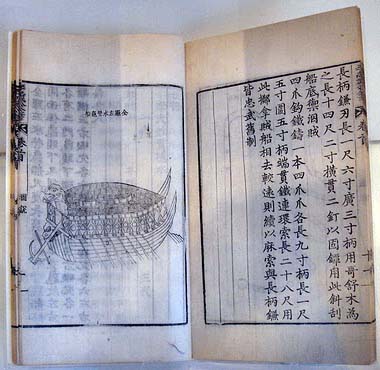 長柄鎌刃長一尺六寸廣三寸柄用哥舒木爲
之長十四尺二寸橫貫二釘以固鎌用此斜刮
船底禦溺賊
四爪鉤鐵鑄一本四爪爪各長九寸柄長一尺
五寸圓五寸柄端貫鐵連環索長二十八尺用
此擲拿賊船相去較遠則續以麻索與長柄鎌
皆忠武舊制
全羅左水營龜船
卷首